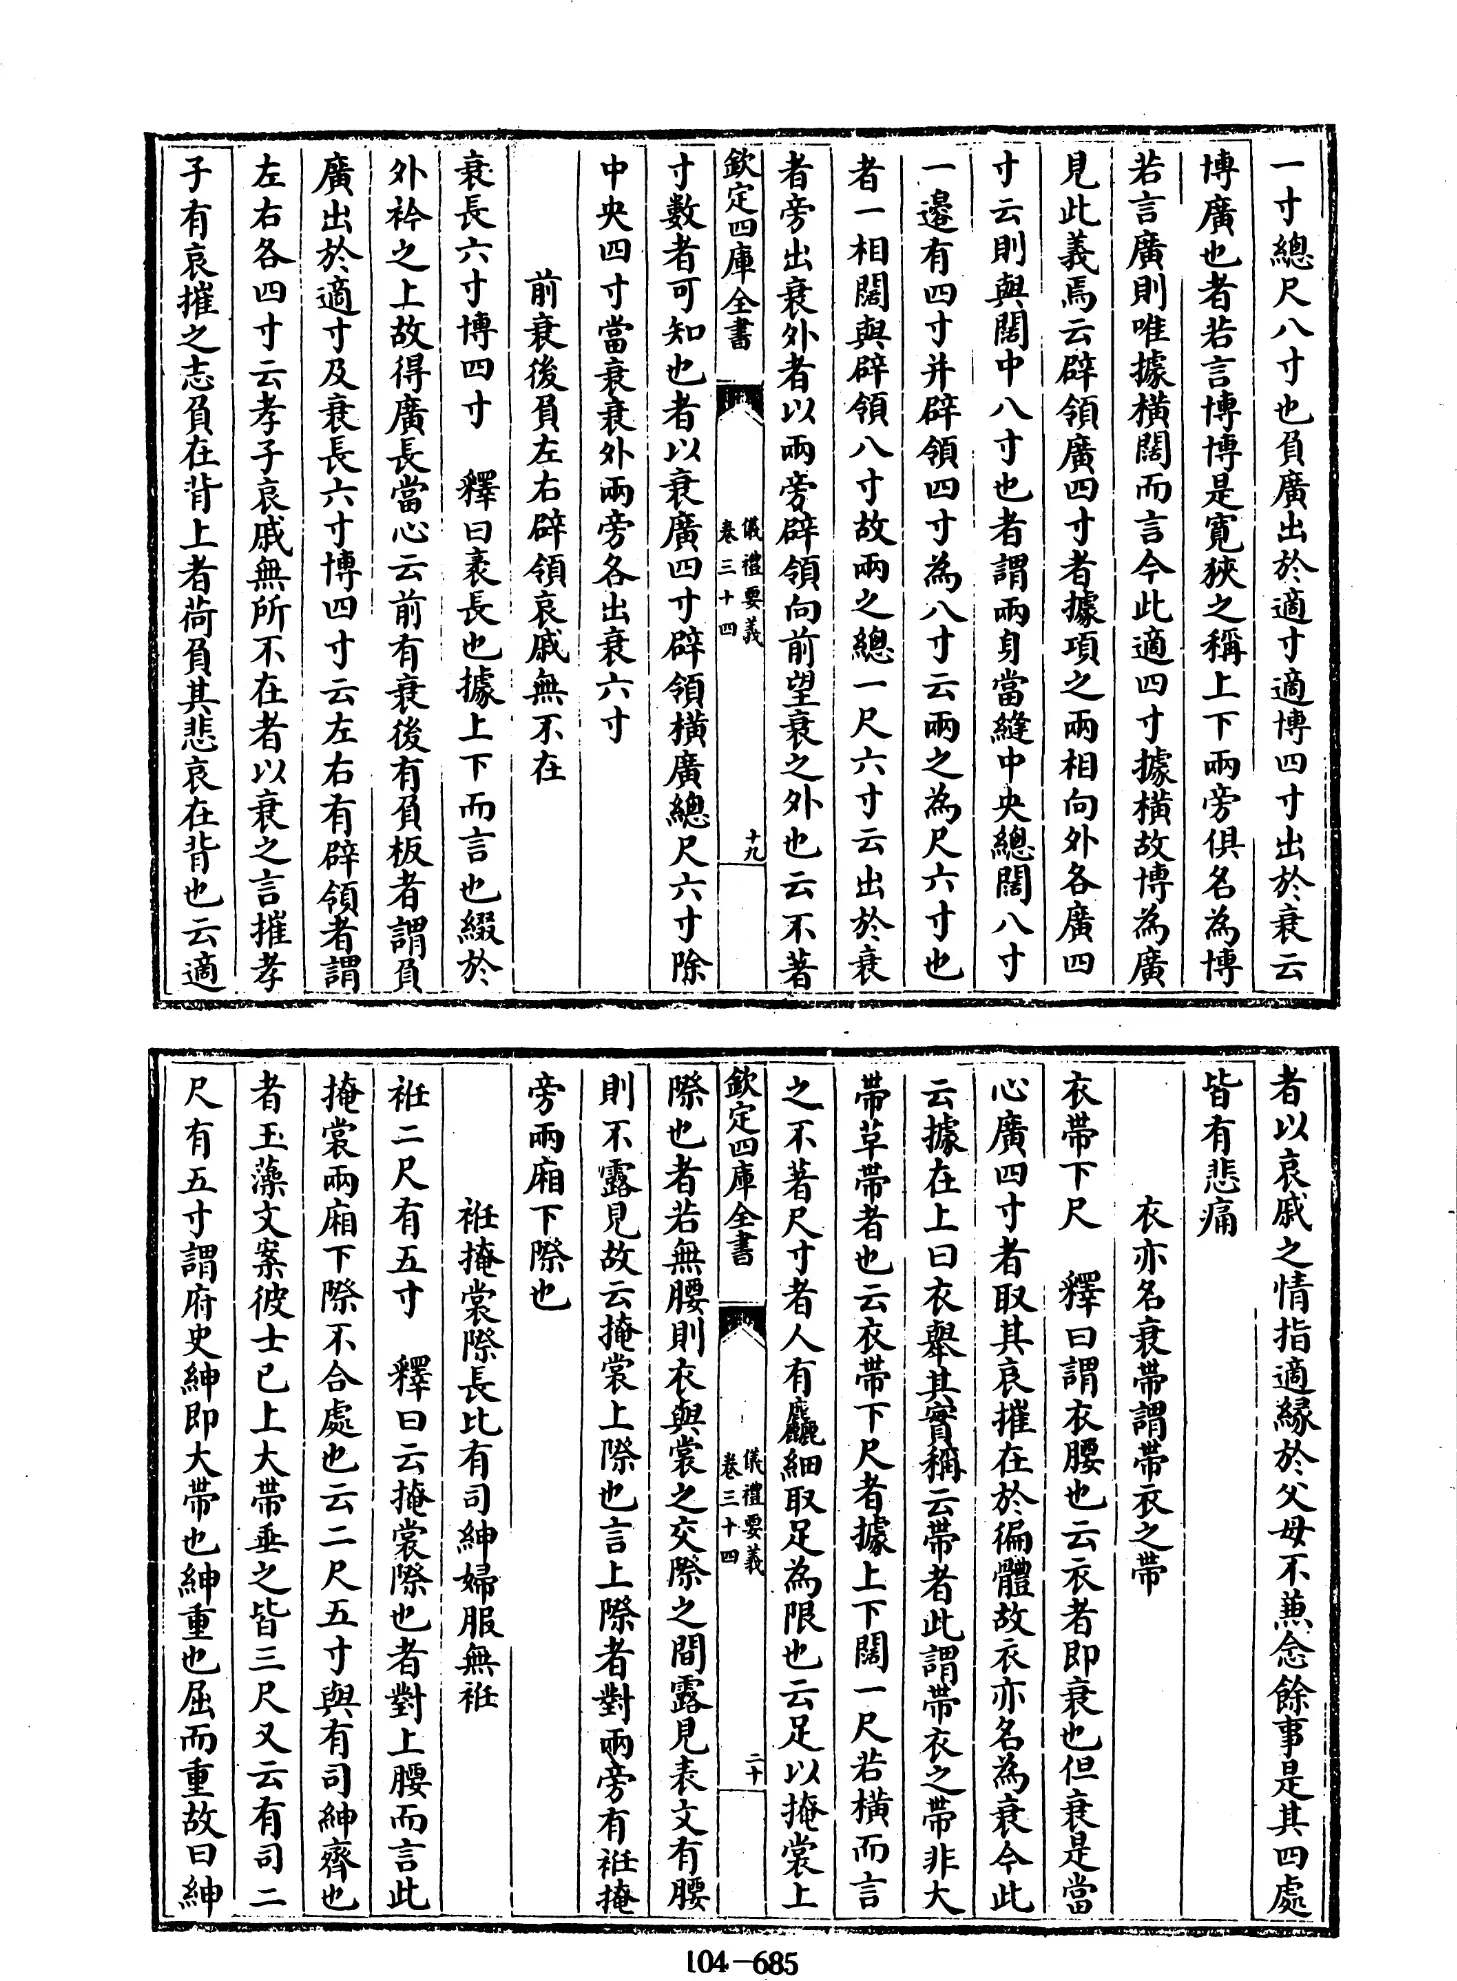 一寸總尺八寸也負廣出於適寸適博四寸出於衰云
博廣也者若言博博是寬狹之稱上下兩旁俱名為博
若言廣則唯據橫闊而言今此適四寸據橫故博為廣
見此義焉云辟領廣四寸者據項之兩相向外各廣四
寸云則與闊中八寸也者謂兩身當縫中央總闊八寸
一邉有四寸并辟領四寸為八寸云兩之為尺六寸也
者一相闊與辟領八寸故兩之總一尺六寸云出於衰
者旁出衰外者以兩旁辟領向前望衰之外也云不著
欽定四庫全書
儀禮要義
卷三十四
十九
寸數者可知也者以衰廣四寸辟領橫廣總尺六寸除
中央四寸當衰衰外兩旁各出衰六寸
前衰後負左右辟領哀戚無不在
衰長六寸博四寸 釋曰袤長也據上下而言也綴於
外衿之上故得廣長當心云前有衰後有負板者謂負
廣出於適寸及衰長六寸博四寸云左右有辟領者謂
左右各四寸云孝子哀戚無所不在者以衰之言摧孝
子有哀摧之志負在背上者荷負其悲哀在背也云適
者以哀戚之情指適緣於父母不兼念餘事是其四處
皆有悲痛
衣亦名衰帶謂帶衣之帶
衣帶下尺 釋曰謂衣腰也云衣者即衰也但衰是當
心廣四寸者取其哀摧在於徧體故衣亦名為衰今此
云據在上曰衣舉其實稱云帶者此謂帶衣之帶非大
帶革帶者也云衣帶下尺者據上下闊一尺若橫而言
之不著尺寸者人有麤細取足為限也云足以掩裳上
欽定四庫全書
儀禮要義
卷三十四
二十
際也者若無腰則衣與裳之交際之間露見表文有腰
則不露見故云掩裳上際也言上際者對兩旁有衽掩
旁兩廂下際也
衽掩裳際長比有司紳婦服無衽
衽二尺有五寸 釋曰云掩裳際也者對上腰而言此
掩裳兩廂下際不合處也云二尺五寸與有司紳齊也
者玉藻文案彼士已上大帶垂之皆三尺又云有司二
尺有五寸謂府史紳即大帶也紳重也屈而重故曰紳
104-685